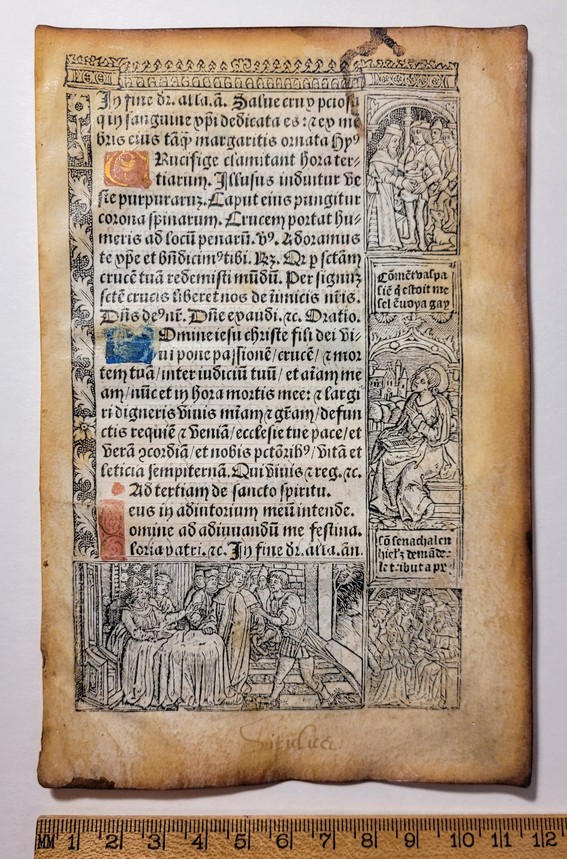 In fine dr̄. alla. ā. Salue crux pciosa
q in sanguine xp̄i dedicata es: ⁊ ex mē
bris eius tāꝗ̄ margaritis ornata Hyꝰ
CRucifige clamitant hora ter-
tiarum. Illusus induitur ve
ste purpurarum. Caput eius pungitur
corona spinarum. Crucem portat hu-
meris ad locū penarū. v̄ꝰ. Adoramus
te xp̄e et bn̄dicimꝰ tibi. Rꝫ. Qr p sctām
crucē tuā redemisti mūdū. Per signū
sctē crucis liberet nos de inimicis nr̄is.
Dn̄s deꝰ nr̄. Dn̄e exaudi. ⁊c. Oratio.
Domine iesu christe fili dei vi-
ui pone passionē/ crucē/ ⁊ mor
tem tuā/ inter iudiciū tuū/ et aīam me
am/ nūc et in hora mortis mee: ⁊ largi
ri digneris viuis mīam ⁊ gr̄am/ defun
ctis requiē ⁊ veniā/ ecclesie tue pacē/ et
verā ↄcordiā/ et nobis pctōribꝰ/ vitā et
leticia sempiternā. Qui viuis ⁊ reg. ⁊c.
Ad tertiam de sancto spiritu.
eus in adiutorium meū intende.
omine ad adiuuandū me festina.
loria patri. ⁊c. In fine dr̄. alla. ān.
Cōmēt vaspa
siē q̄ estoit me
sel ēuoya gay
sō senachal en
hiel'z demāde-
le tribut a py